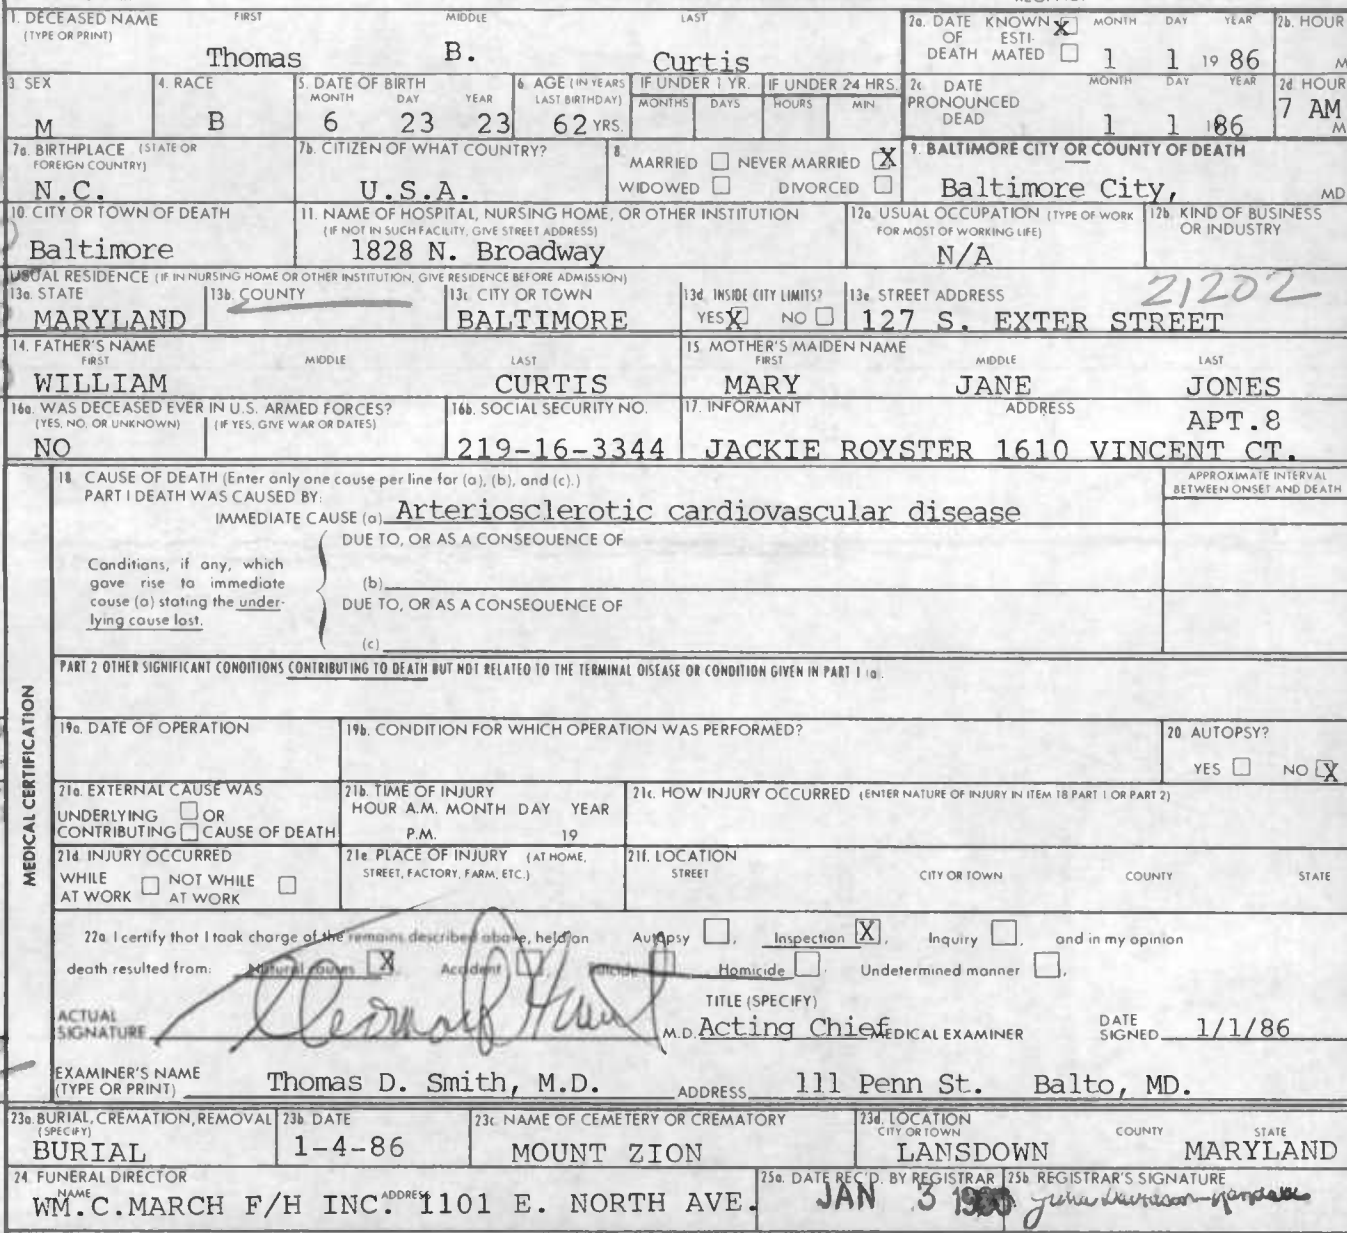 1. DECEASED NAME FIRST MIDDLE LAST
(TYPE OR PRINT)
Thomas B. Curtis
2a. DATE OF DEATH KNOWN X ESTIMATED MONTH DAY YEAR
1 1 19 86
2b. HOUR
M
3. SEX
M
4. RACE
B
5. DATE OF BIRTH
MONTH DAY YEAR
6 23 23
6. AGE (IN YEARS LAST BIRTHDAY)
62 YRS.
IF UNDER 1 YR.
MONTHS DAYS
IF UNDER 24 HRS.
HOURS MIN
2c. DATE PRONOUNCED DEAD
MONTH DAY YEAR
1 1 1986
2d. HOUR
7 AM
M
7a. BIRTHPLACE (STATE OR FOREIGN COUNTRY)
N.C.
7b. CITIZEN OF WHAT COUNTRY?
U.S.A.
8. MARRIED NEVER MARRIED X
WIDOWED DIVORCED
9. BALTIMORE CITY OR COUNTY OF DEATH
Baltimore City, MD
10. CITY OR TOWN OF DEATH
Baltimore
11. NAME OF HOSPITAL, NURSING HOME, OR OTHER INSTITUTION
(IF NOT IN SUCH FACILITY, GIVE STREET ADDRESS)
1828 N. Broadway
12a. USUAL OCCUPATION (TYPE OF WORK FOR MOST OF WORKING LIFE)
N/A
12b. KIND OF BUSINESS OR INDUSTRY
USUAL RESIDENCE (IF IN NURSING HOME OR OTHER INSTITUTION, GIVE RESIDENCE BEFORE ADMISSION)
13a. STATE
MARYLAND
13b. COUNTY
13c. CITY OR TOWN
BALTIMORE
13d. INSIDE CITY LIMITS?
YES X NO
13e. STREET ADDRESS 21202
127 S. EXTER STREET
14. FATHER'S NAME
FIRST MIDDLE LAST
WILLIAM CURTIS
15. MOTHER'S MAIDEN NAME
FIRST MIDDLE LAST
MARY JANE JONES
16a. WAS DECEASED EVER IN U.S. ARMED FORCES?
(YES, NO, OR UNKNOWN) (IF YES, GIVE WAR OR DATES)
NO
16b. SOCIAL SECURITY NO.
219-16-3344
17. INFORMANT ADDRESS
APT.8
JACKIE ROYSTER 1610 VINCENT CT.
MEDICAL CERTIFICATION
18 CAUSE OF DEATH (Enter only one cause per line for (a), (b), and (c).)
APPROXIMATE INTERVAL BETWEEN ONSET AND DEATH
PART I DEATH WAS CAUSED BY:
IMMEDIATE CAUSE (a) Arteriosclerotic cardiovascular disease
DUE TO, OR AS A CONSEQUENCE OF
Conditions, if any, which gave rise to immediate cause (a) stating the underlying cause last.
(b)
DUE TO, OR AS A CONSEQUENCE OF
(c)
PART 2 OTHER SIGNIFICANT CONDITIONS CONTRIBUTING TO DEATH BUT NOT RELATED TO THE TERMINAL DISEASE OR CONDITION GIVEN IN PART I (a).
19a. DATE OF OPERATION
19b. CONDITION FOR WHICH OPERATION WAS PERFORMED?
20. AUTOPSY?
YES NO X
21a. EXTERNAL CAUSE WAS
UNDERLYING OR
CONTRIBUTING CAUSE OF DEATH
21b. TIME OF INJURY
HOUR A.M. MONTH DAY YEAR
P.M. 19
21c. HOW INJURY OCCURRED (ENTER NATURE OF INJURY IN ITEM 18 PART 1 OR PART 2)
21d INJURY OCCURRED
WHILE AT WORK NOT WHILE AT WORK
21e PLACE OF INJURY (AT HOME, STREET, FACTORY, FARM, ETC.)
21f. LOCATION
STREET CITY OR TOWN COUNTY STATE
22a I certify that I took charge of the remains described above, held an Autopsy , Inspection X , Inquiry , and in my opinion
death resulted from: Natural causes X Accident , Suicide Homicide . Undetermined manner ,
ACTUAL SIGNATURE M.D.
TITLE (SPECIFY)
Acting Chief MEDICAL EXAMINER
DATE SIGNED 1/1/86
EXAMINER'S NAME (TYPE OR PRINT) Thomas D. Smith, M.D. ADDRESS 111 Penn St. Balto, MD.
23a. BURIAL, CREMATION, REMOVAL (SPECIFY)
BURIAL
23b DATE
1-4-86
23c NAME OF CEMETERY OR CREMATORY
MOUNT ZION
23d. LOCATION
CITY OR TOWN COUNTY STATE
LANSDOWN MARYLAND
24. FUNERAL DIRECTOR
NAME ADDRESS
WM.C.MARCH F/H INC. 1101 E. NORTH AVE.
25a. DATE REC'D. BY REGISTRAR
JAN 3 1986
25b. REGISTRAR'S SIGNATURE